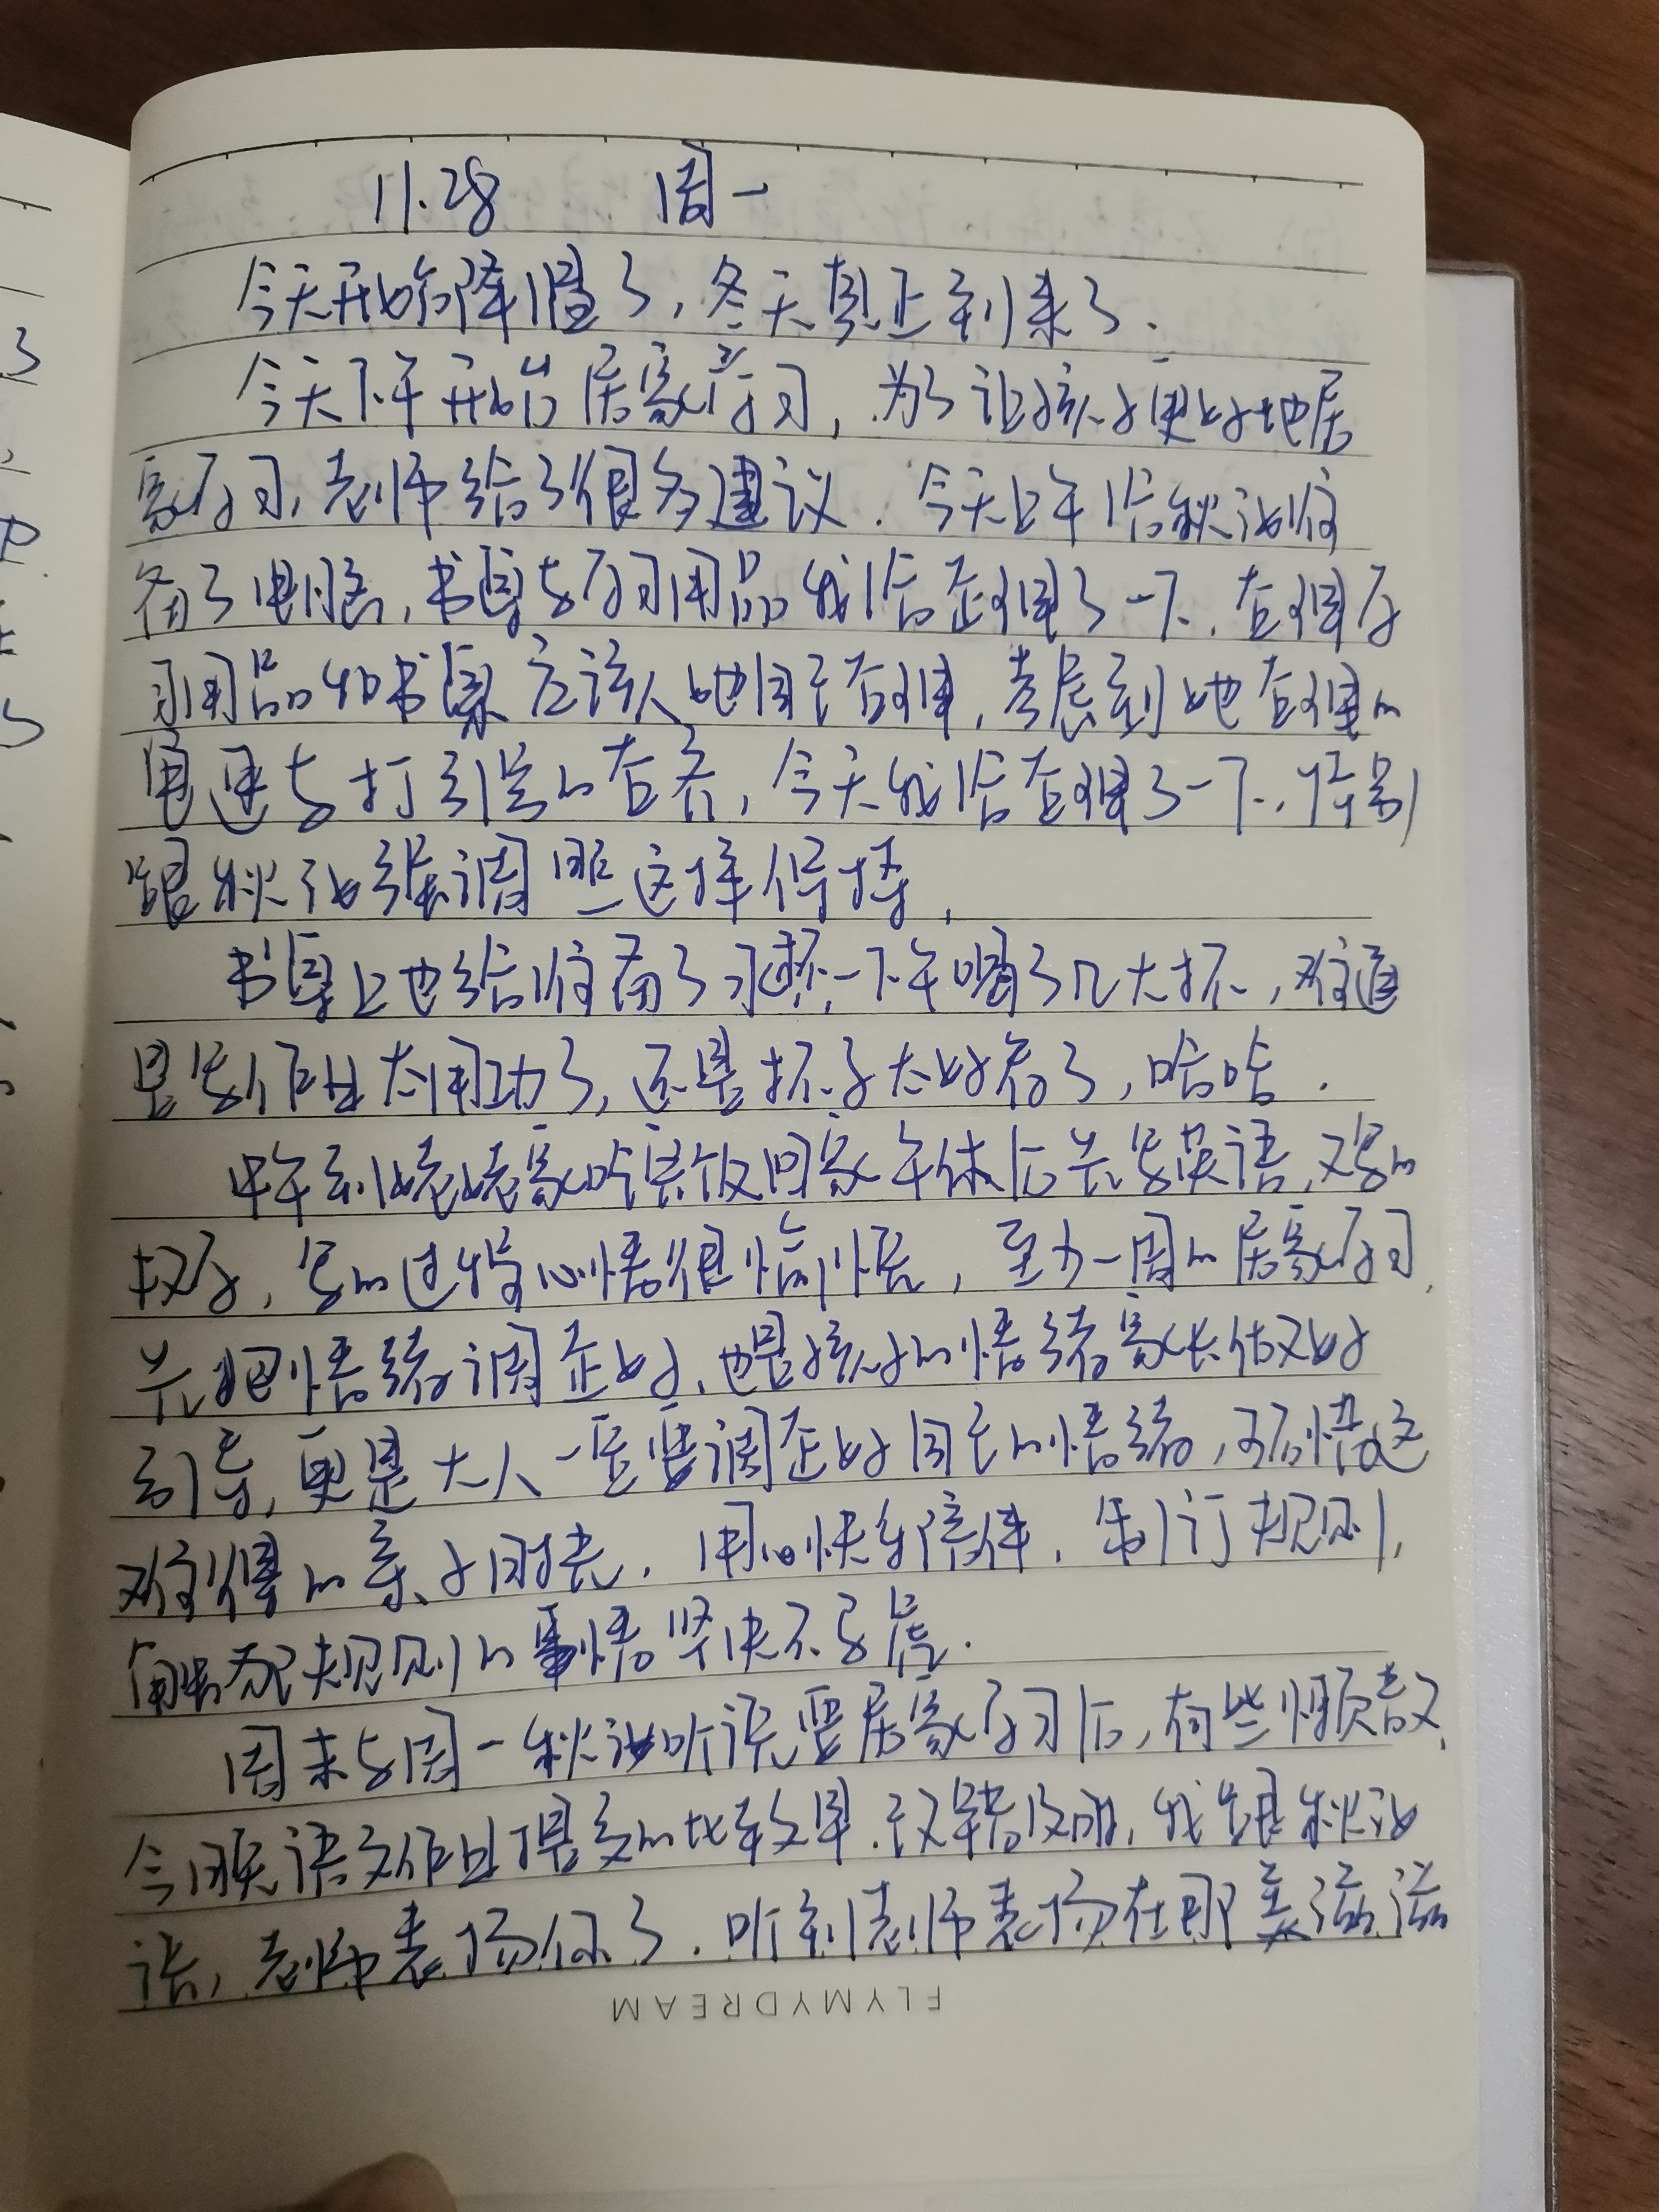 11.28 周一
今天开始降温了,冬天真正到来了.
今天下午开始居家学习,为了让孩子更好地居
家学习,老师给了很多建议.今天上午给秋池准
备了电脑,书桌与学习用品我给整理了一下,整理学
习用品和书桌应该人她自己整理,考虑到她整理的
与打引的,今天我给整理了一下,特别
跟秋池强调照这样保持,
书桌上也给准备了水杯,一下午喝了几大杯,难道
是写作业太用功了,还是杯子太好看了,哈哈.
中午到姥姥家吃完饭回家午休后先写英语,又写的
数学,写的过程心情很愉悦,至少一周的居家学习,
先把情绪调整好,也是孩子的情绪家长做好
引导,更是大人一定要调整好自己的情绪,珍惜这
难得的亲子时光.用心快乐陪伴,制订规则,
触犯规则的事情坚决不多惯.
周末与周一秋池听说要居家学习后,有些懒散,
今晚语文作业提交的比较早.订正错及时,我跟秋池
说,老师表扬你了.听到老师表扬在那美滋滋
FLYMYDREAM